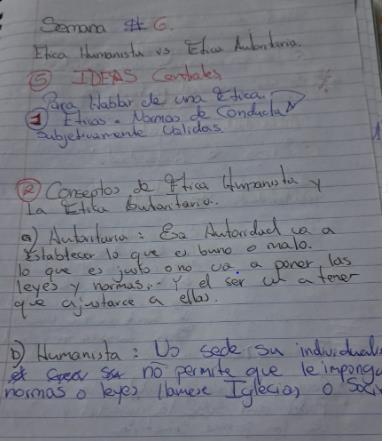 Semana # 6.
Etica Humanista vs Etica Autoritaria.
⑤ IDEAS Centrales
Para Hablar de una Etica.
① Eticas = Normas de Conducta
subjetivamente Validas.
② Conceptos de Etica Humanista y
La Etica Autoritaria.
a) Autoritaria: Esa Autoridad va a
Establecer lo que es buno o malo.
lo que es justo o no va a poner las
leyes y normas,.. Y el ser va a tener
que ajustarce a ellas.
b) Humanista: No sede su individual
no permite que le impong
normas o leyes llamese Iglecia, o Soci